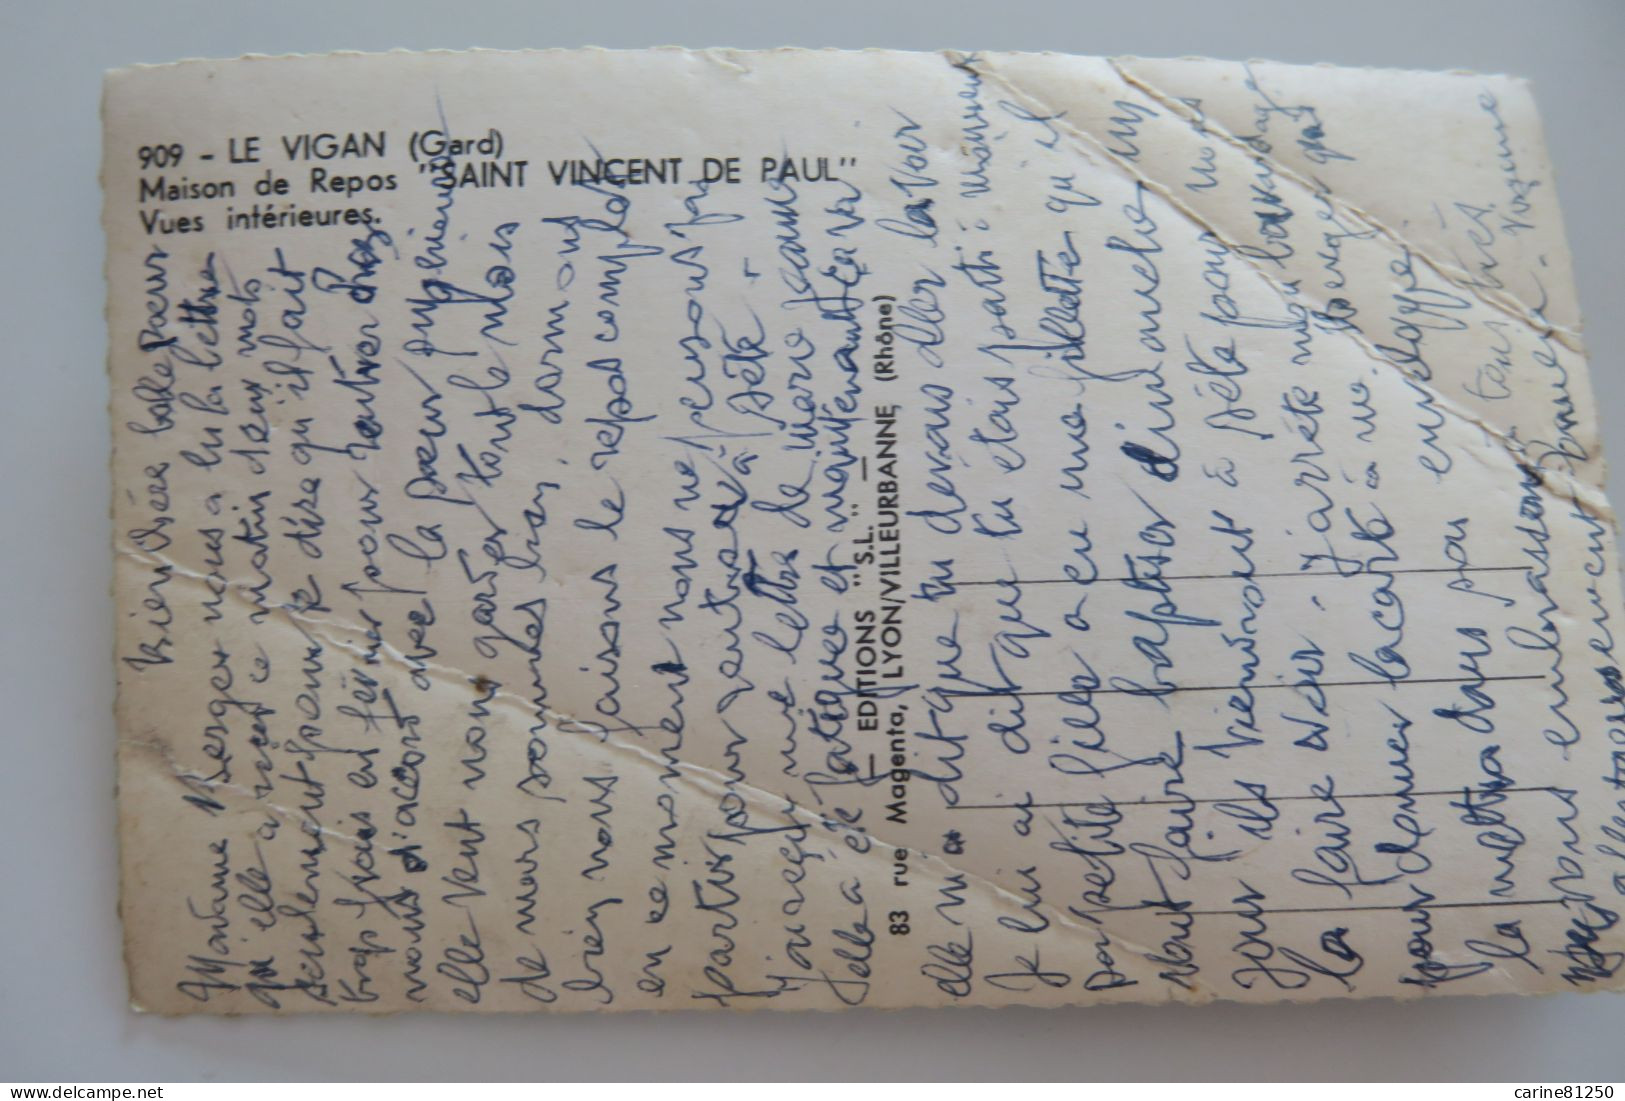 909 - LE VIGAN (Gard)
Maison de Repos "SAINT VINCENT DE PAUL"
Vues intérieures.
— EDITIONS "S.L." —
83 rue Magenta, LYON/VILLEURBANNE (Rhône)
Bien chère soeur
Madame Berger nous a lu la lettre
qu'elle a reçu ce matin deux mots
seulement pour te dire qu'il fait
trop frais en février pour rentrer chez
nous d'accord avec la soeur supérieure
elle veut nous garder tout le mois
de mars sommes bien, dormons
bien nous faisons le repos complet
en ce moment nous ne pensons pas
partir pour rentrer à Sète.
J'ai reçu une lettre de marie jeanne
elle a été fatiguée et maintenant ça va
elle m'a dit que tu devais aller la voir
Je lui ai dit que tu étais parti
son petite fille a eu une fillette qu'il
vont faire baptiser dimanche un
jour ils viendront à Sète pour nous
la faire voir. J'arrête mon bavardage
pour donner la carte à me. Berger qui
la mettra dans son enveloppe.
nous embrassons bien très
affectueusement